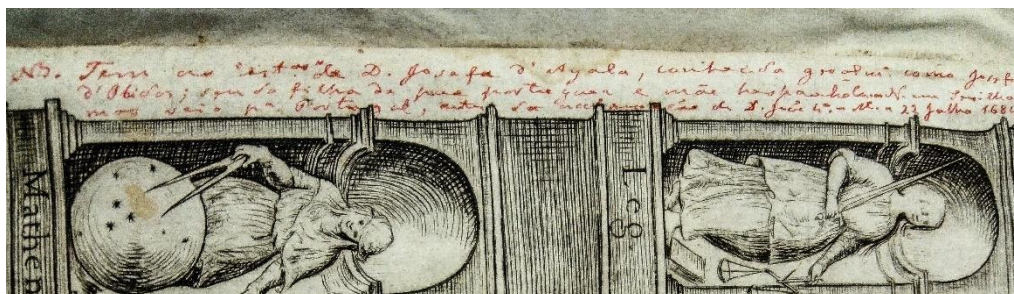 NB. Tem as de D. Josefa d'Ayala, conhecida como Josefa
d'Obidos; sendo filha de pae portuguez e mãe hespanhola N. em Sevilha
mas veio pª Portugal, antes da acclamação de D. João 4º. M. a 22 Julho 1684
Mathem